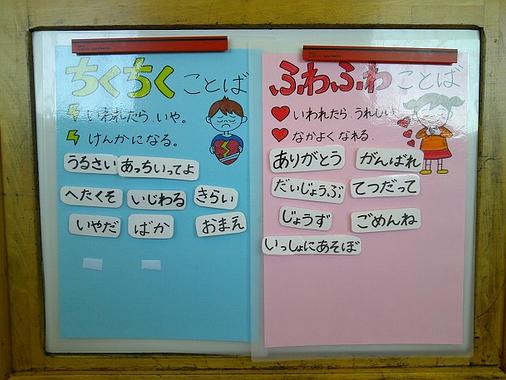 ちくちくことば
いわれたら いや。
けんかになる。
うるさい あっちいってよ
へたくそ いじわる きらい
いやだ ばか おまえ
ふわふわことば
いわれたら うれしい
なかよくなれる。
ありがとう がんばれ
だいじょうぶ てつだって
じょうず ごめんね
いっしょにあそぼ